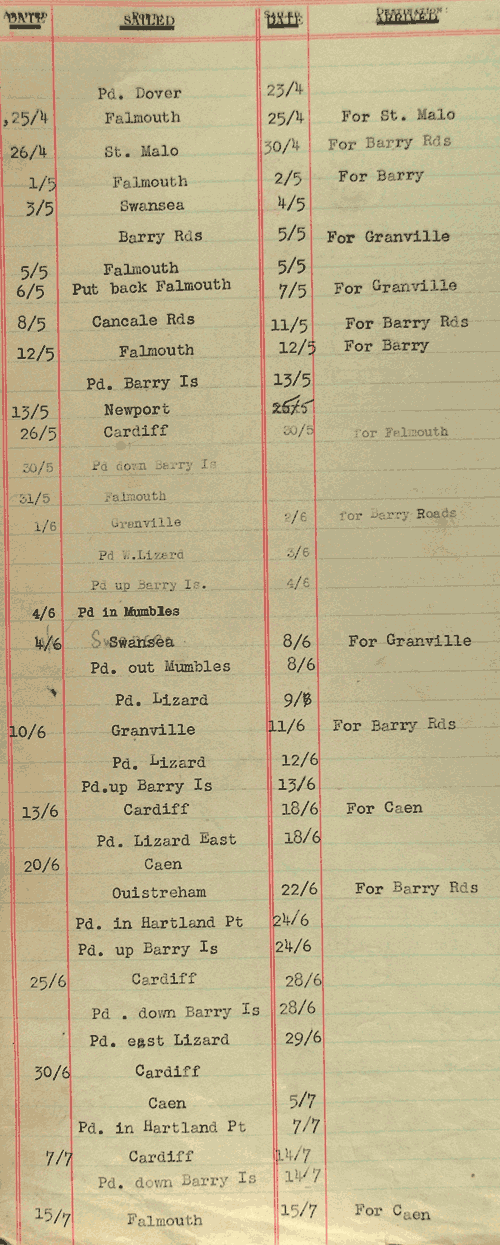 DATE SAILED DATE DESTINATION: ARRIVED
Pd. Dover 23/4
25/4 Falmouth 25/4 For St. Malo
26/4 St. Malo 30/4 For Barry Rds
1/5 Falmouth 2/5 For Barry
3/5 Swansea 4/5
Barry Rds 5/5 For Granville
5/5 Falmouth 5/5
6/5 Put back Falmouth 7/5 For Granville
8/5 Cancale Rds 11/5 For Barry Rds
12/5 Falmouth 12/5 For Barry
Pd. Barry Is 13/5
13/5 Newport 26/5
26/5 Cardiff 30/5 for Falmouth
30/5 Pd down Barry Is
31/5 Falmouth
1/6 Granville 2/6 for Barry Roads
Pd W.Lizard 3/6
Pd up Barry Is. 4/6
4/6 Pd in Mumbles
4/6 Swansea 8/6 For Granville
Pd. out Mumbles 8/6
Pd. Lizard 9/6
10/6 Granville 11/6 For Barry Rds
Pd. Lizard 12/6
Pd.up Barry Is 13/6
13/6 Cardiff 18/6 For Caen
Pd. Lizard East 18/6
20/6 Caen
Ouistreham 22/6 For Barry Rds
Pd. in Hartland Pt 24/6
Pd. up Barry Is 24/6
25/6 Cardiff 28/6
Pd . down Barry Is 28/6
Pd. east Lizard 29/6
30/6 Cardiff
Caen 5/7
Pd. in Hartland Pt 7/7
7/7 Cardiff 14/7
Pd. down Barry Is 14/7
15/7 Falmouth 15/7 For Caen